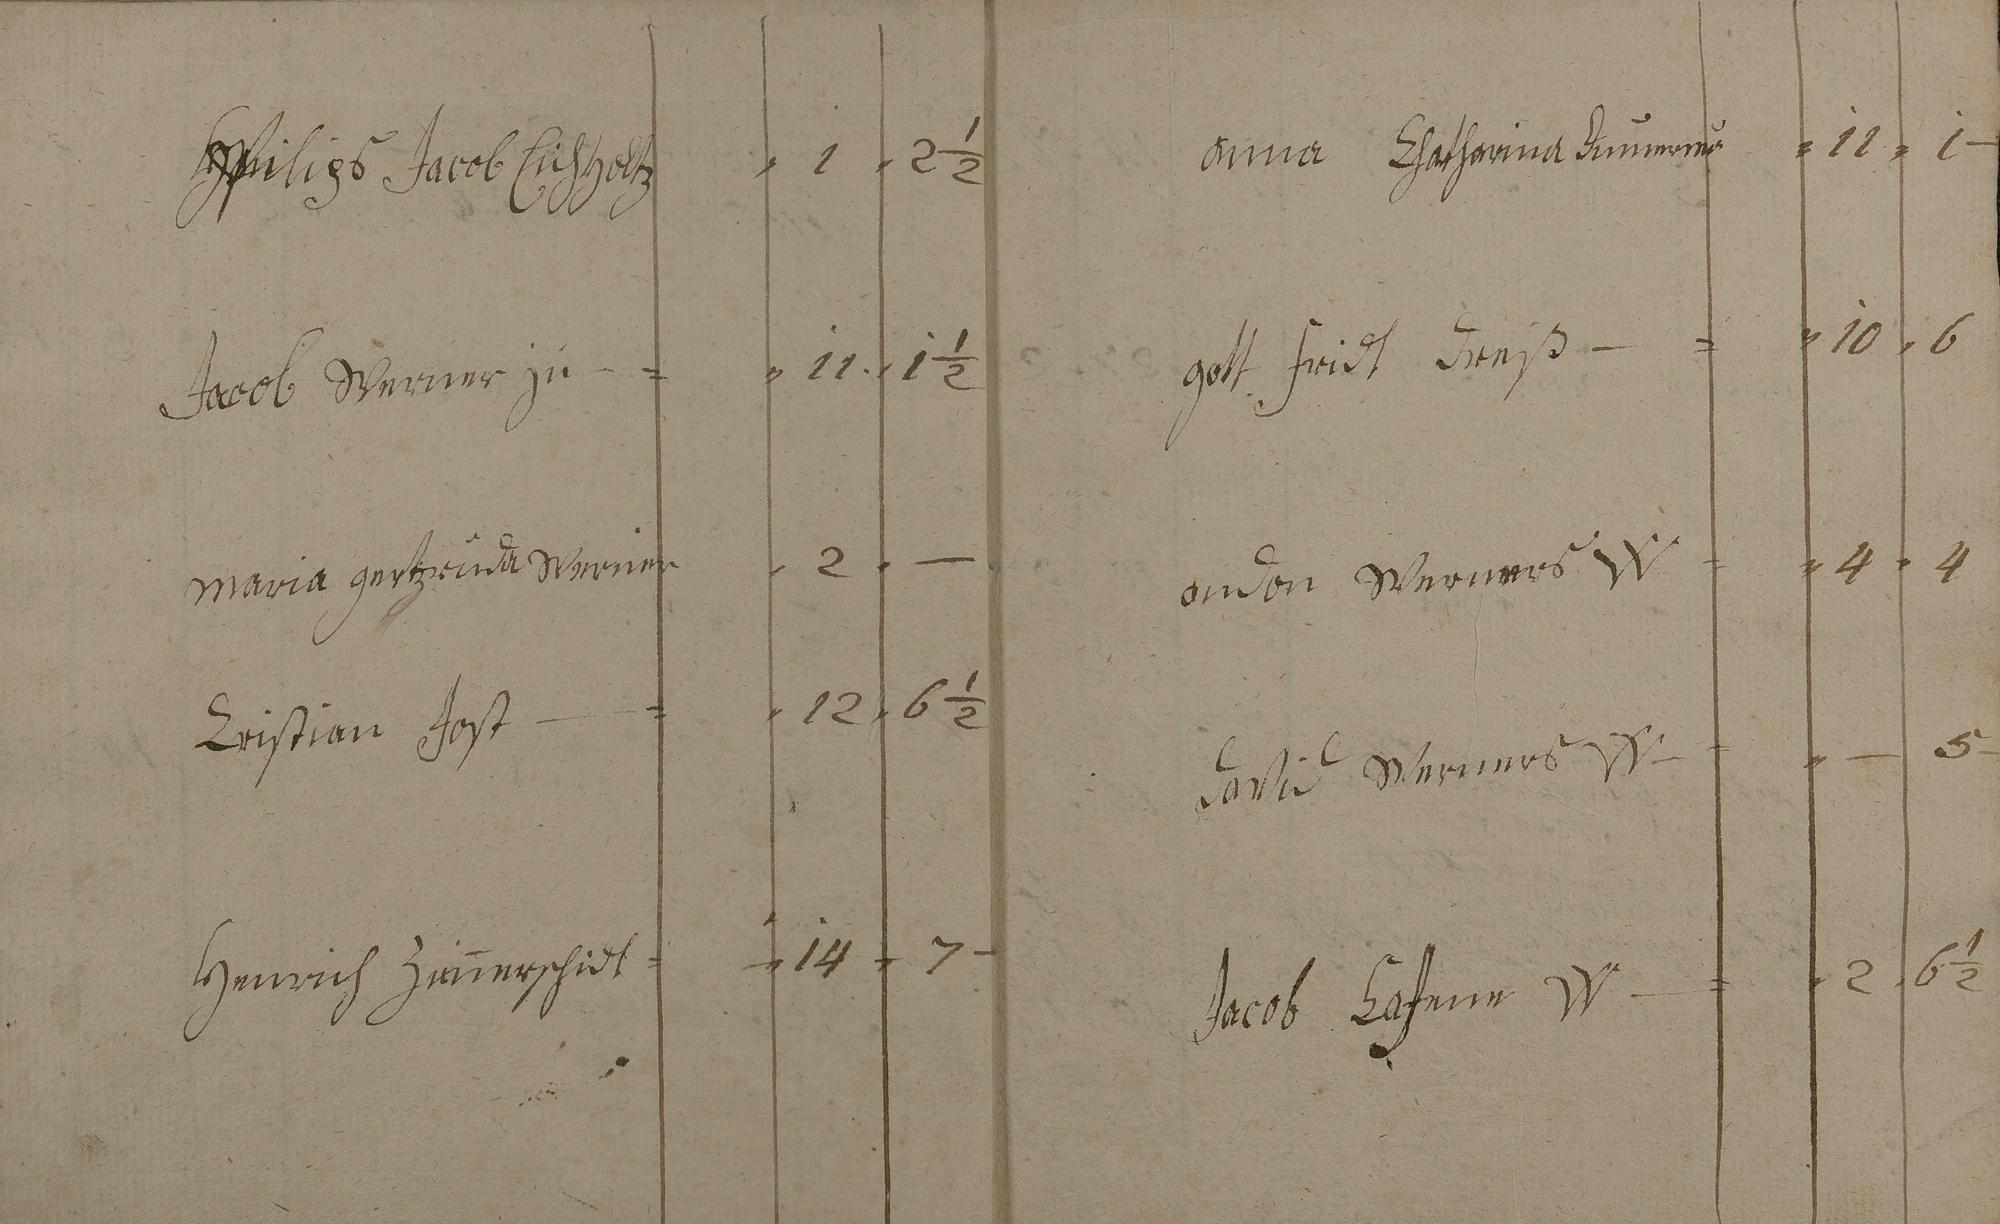 Philips Jacob Eichholtz " 1 " 2 1/2
Jacob Werner ju - = " 11 " 1 1/2
maria gertruda Werner " 2 " —
Cristian Jost — = " 12 " 6 1/2
Henrich Zimerschidt = " 14 " 7 -
anna Chatharina " 11 " 1 -
gott fridt Dreiß — = " 10 " 6
andon Werners W - " 4 " 4
david Werners W - " — 5 -
Jacob W — = " 2 " 6 1/2